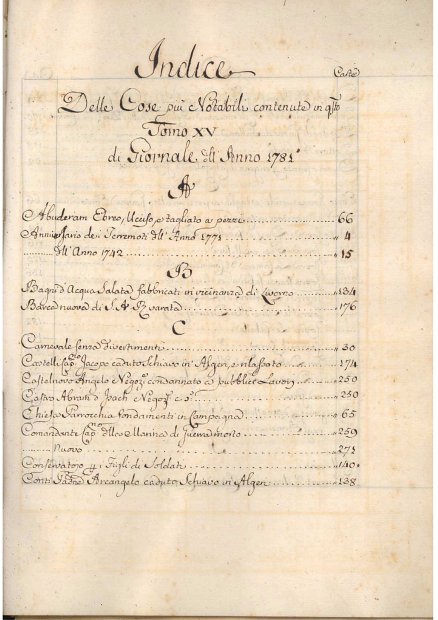 Indice
Carte
Delle Cose più Notabili contenute in qsto
Tomo XV
di Giornale dll' Anno 1781
A
Abuderam Ebreo, Ucciso, e tagliato a pezzi 66
Anniversario dei Terremoti dll' Anno 1771 " 4
dll' Anno 1742 " 15
B
Bagni d'Acqua Salata fabbricati in vicinanza di Livorno " 134
Barca nuova di S.A.R. varata " 176
C
Carnevale senza divertimenti " 30
Castelli Jacopo caduto Schiavo in Algeri, e rilasciato " 174
Castelnuovo Angelo Negoz. condannato a' pubblici Lavori " 250
Castro Abram d' Isach Negoz. " 250
Chiesa Parrocchia fondamenti in Campagna " 65
Comandante dlla Marina di guerra morto " 259
Nuovo " 271
Conservatorio p Figli di Soldati " 140
Conti Arcangelo caduto Schiavo in Algeri " 138